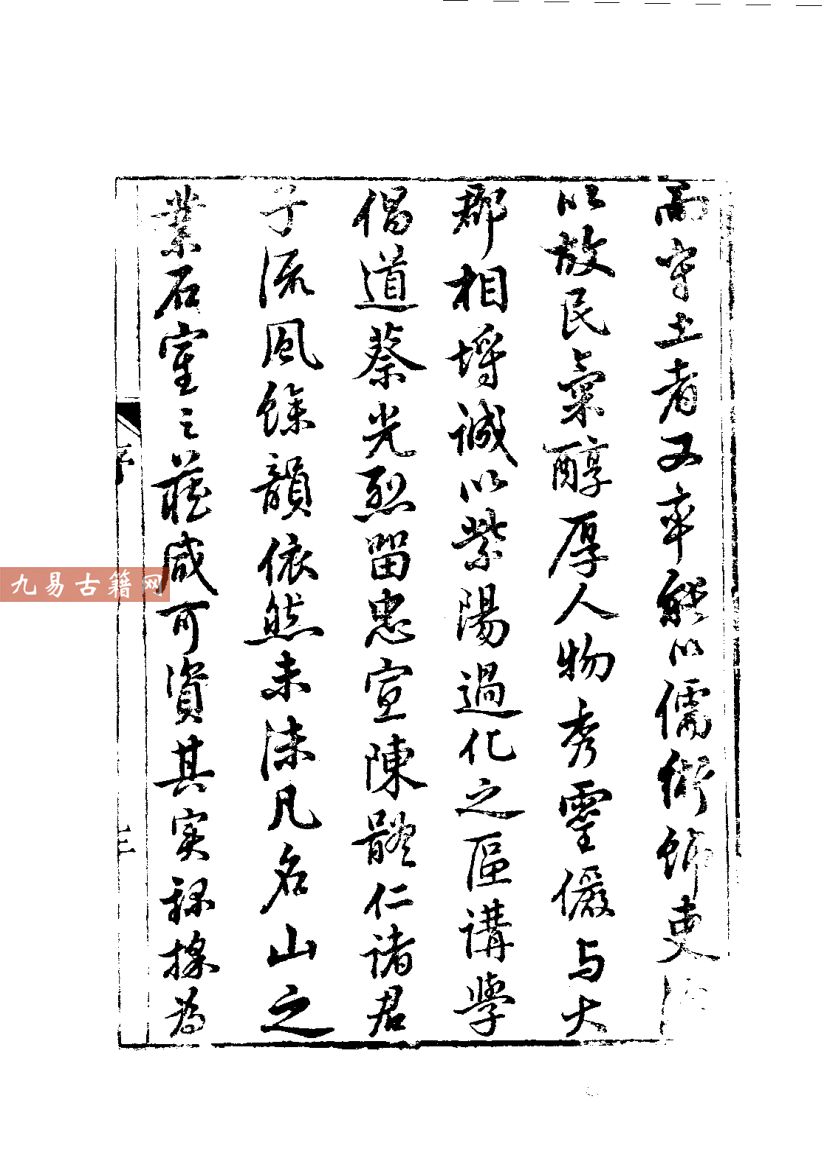 而守土者又率能以儒術飾吏治
以故民氣醇厚人物秀靈儼与大
郡相埒誠以紫陽過化之區講學
倡道蔡光烈留忠宣陳體仁諸君
子流風餘韻依然未沫凡名山之
業石室之蔵咸可資其实録採為
序
三
九易古籍网